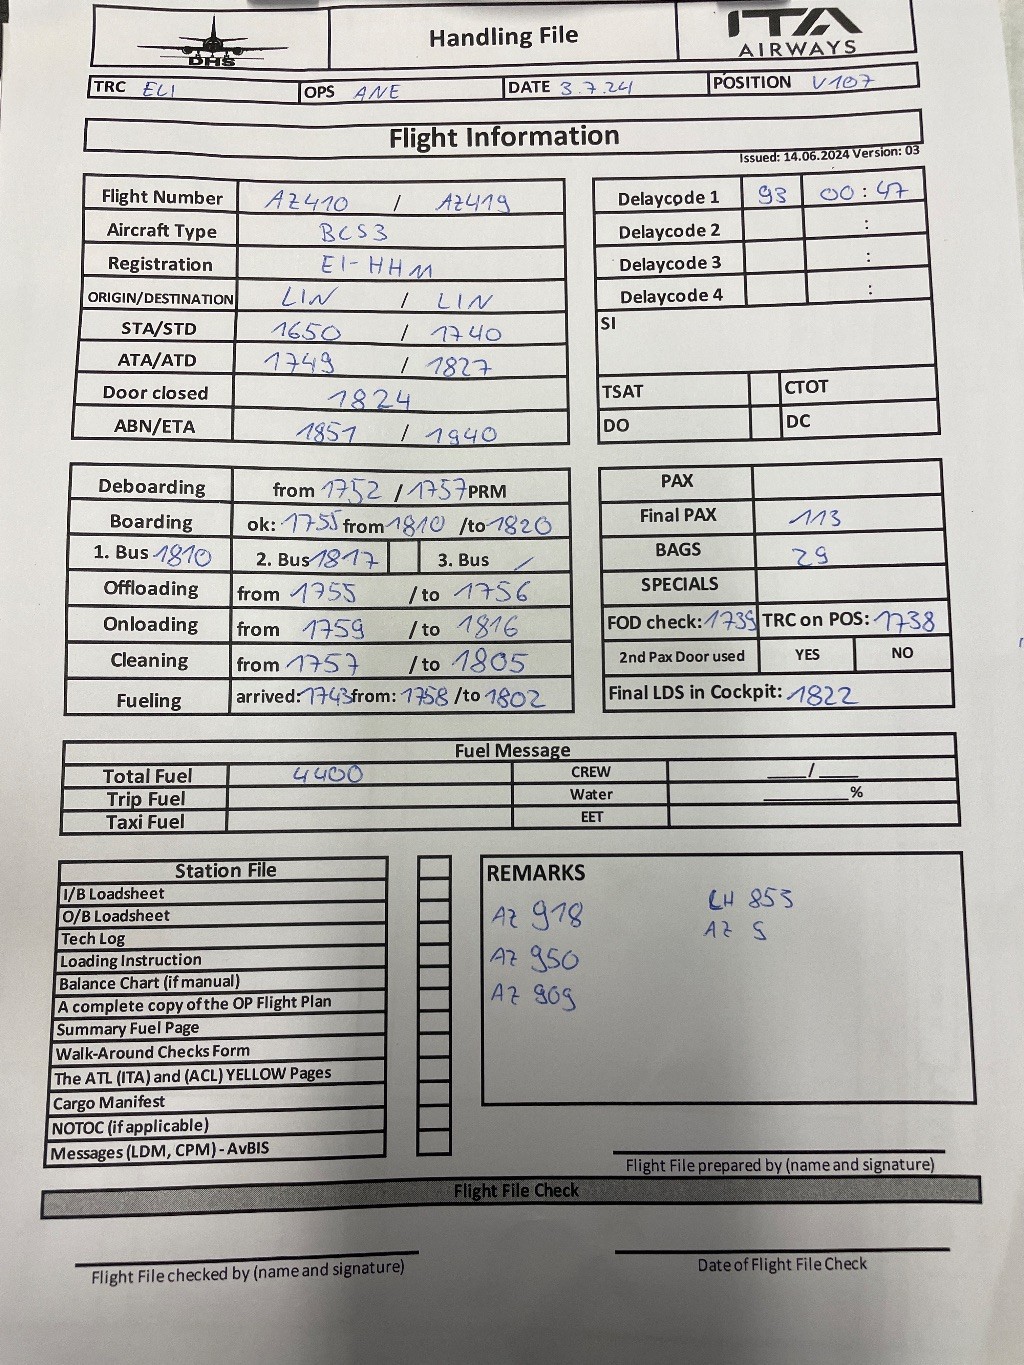 DHS
Handling File
ITA
AIRWAYS
TRC ELI OPS ANE DATE 3.7.24 POSITION V107
Flight Information
Issued: 14.06.2024 Version: 03
Flight Number AZ410 / AZ419
Aircraft Type BCS3
Registration EI-HHM
ORIGIN/DESTINATION LIN / LIN
STA/STD 1650 / 1740
ATA/ATD 1749 / 1827
Door closed 1824
ABN/ETA 1851 / 1940
Delaycode 1 93 00:47
Delaycode 2 :
Delaycode 3 :
Delaycode 4 :
SI
TSAT CTOT
DO DC
Deboarding from 1752 / 1757 PRM
Boarding ok: 1755 from 1810 /to 1820
1. Bus 1810 2. Bus 1817 3. Bus /
Offloading from 1755 /to 1756
Onloading from 1759 /to 1816
Cleaning from 1757 /to 1805
Fueling arrived: 1743 from: 1758 /to 1802
PAX
Final PAX 113
BAGS 29
SPECIALS
FOD check: 1739 TRC on POS: 1738
2nd Pax Door used YES NO
Final LDS in Cockpit: 1822
Fuel Message
Total Fuel 4400 CREW ____/____
Trip Fuel Water ________%
Taxi Fuel EET
Station File
I/B Loadsheet
O/B Loadsheet
Tech Log
Loading Instruction
Balance Chart (if manual)
A complete copy of the OP Flight Plan
Summary Fuel Page
Walk-Around Checks Form
The ATL (ITA) and (ACL) YELLOW Pages
Cargo Manifest
NOTOC (if applicable)
Messages (LDM, CPM) - AvBIS
REMARKS
AZ 918 LH 853
AZ 950 AZ 9
AZ 909
Flight File prepared by (name and signature)
Flight File Check
Flight File checked by (name and signature)
Date of Flight File Check